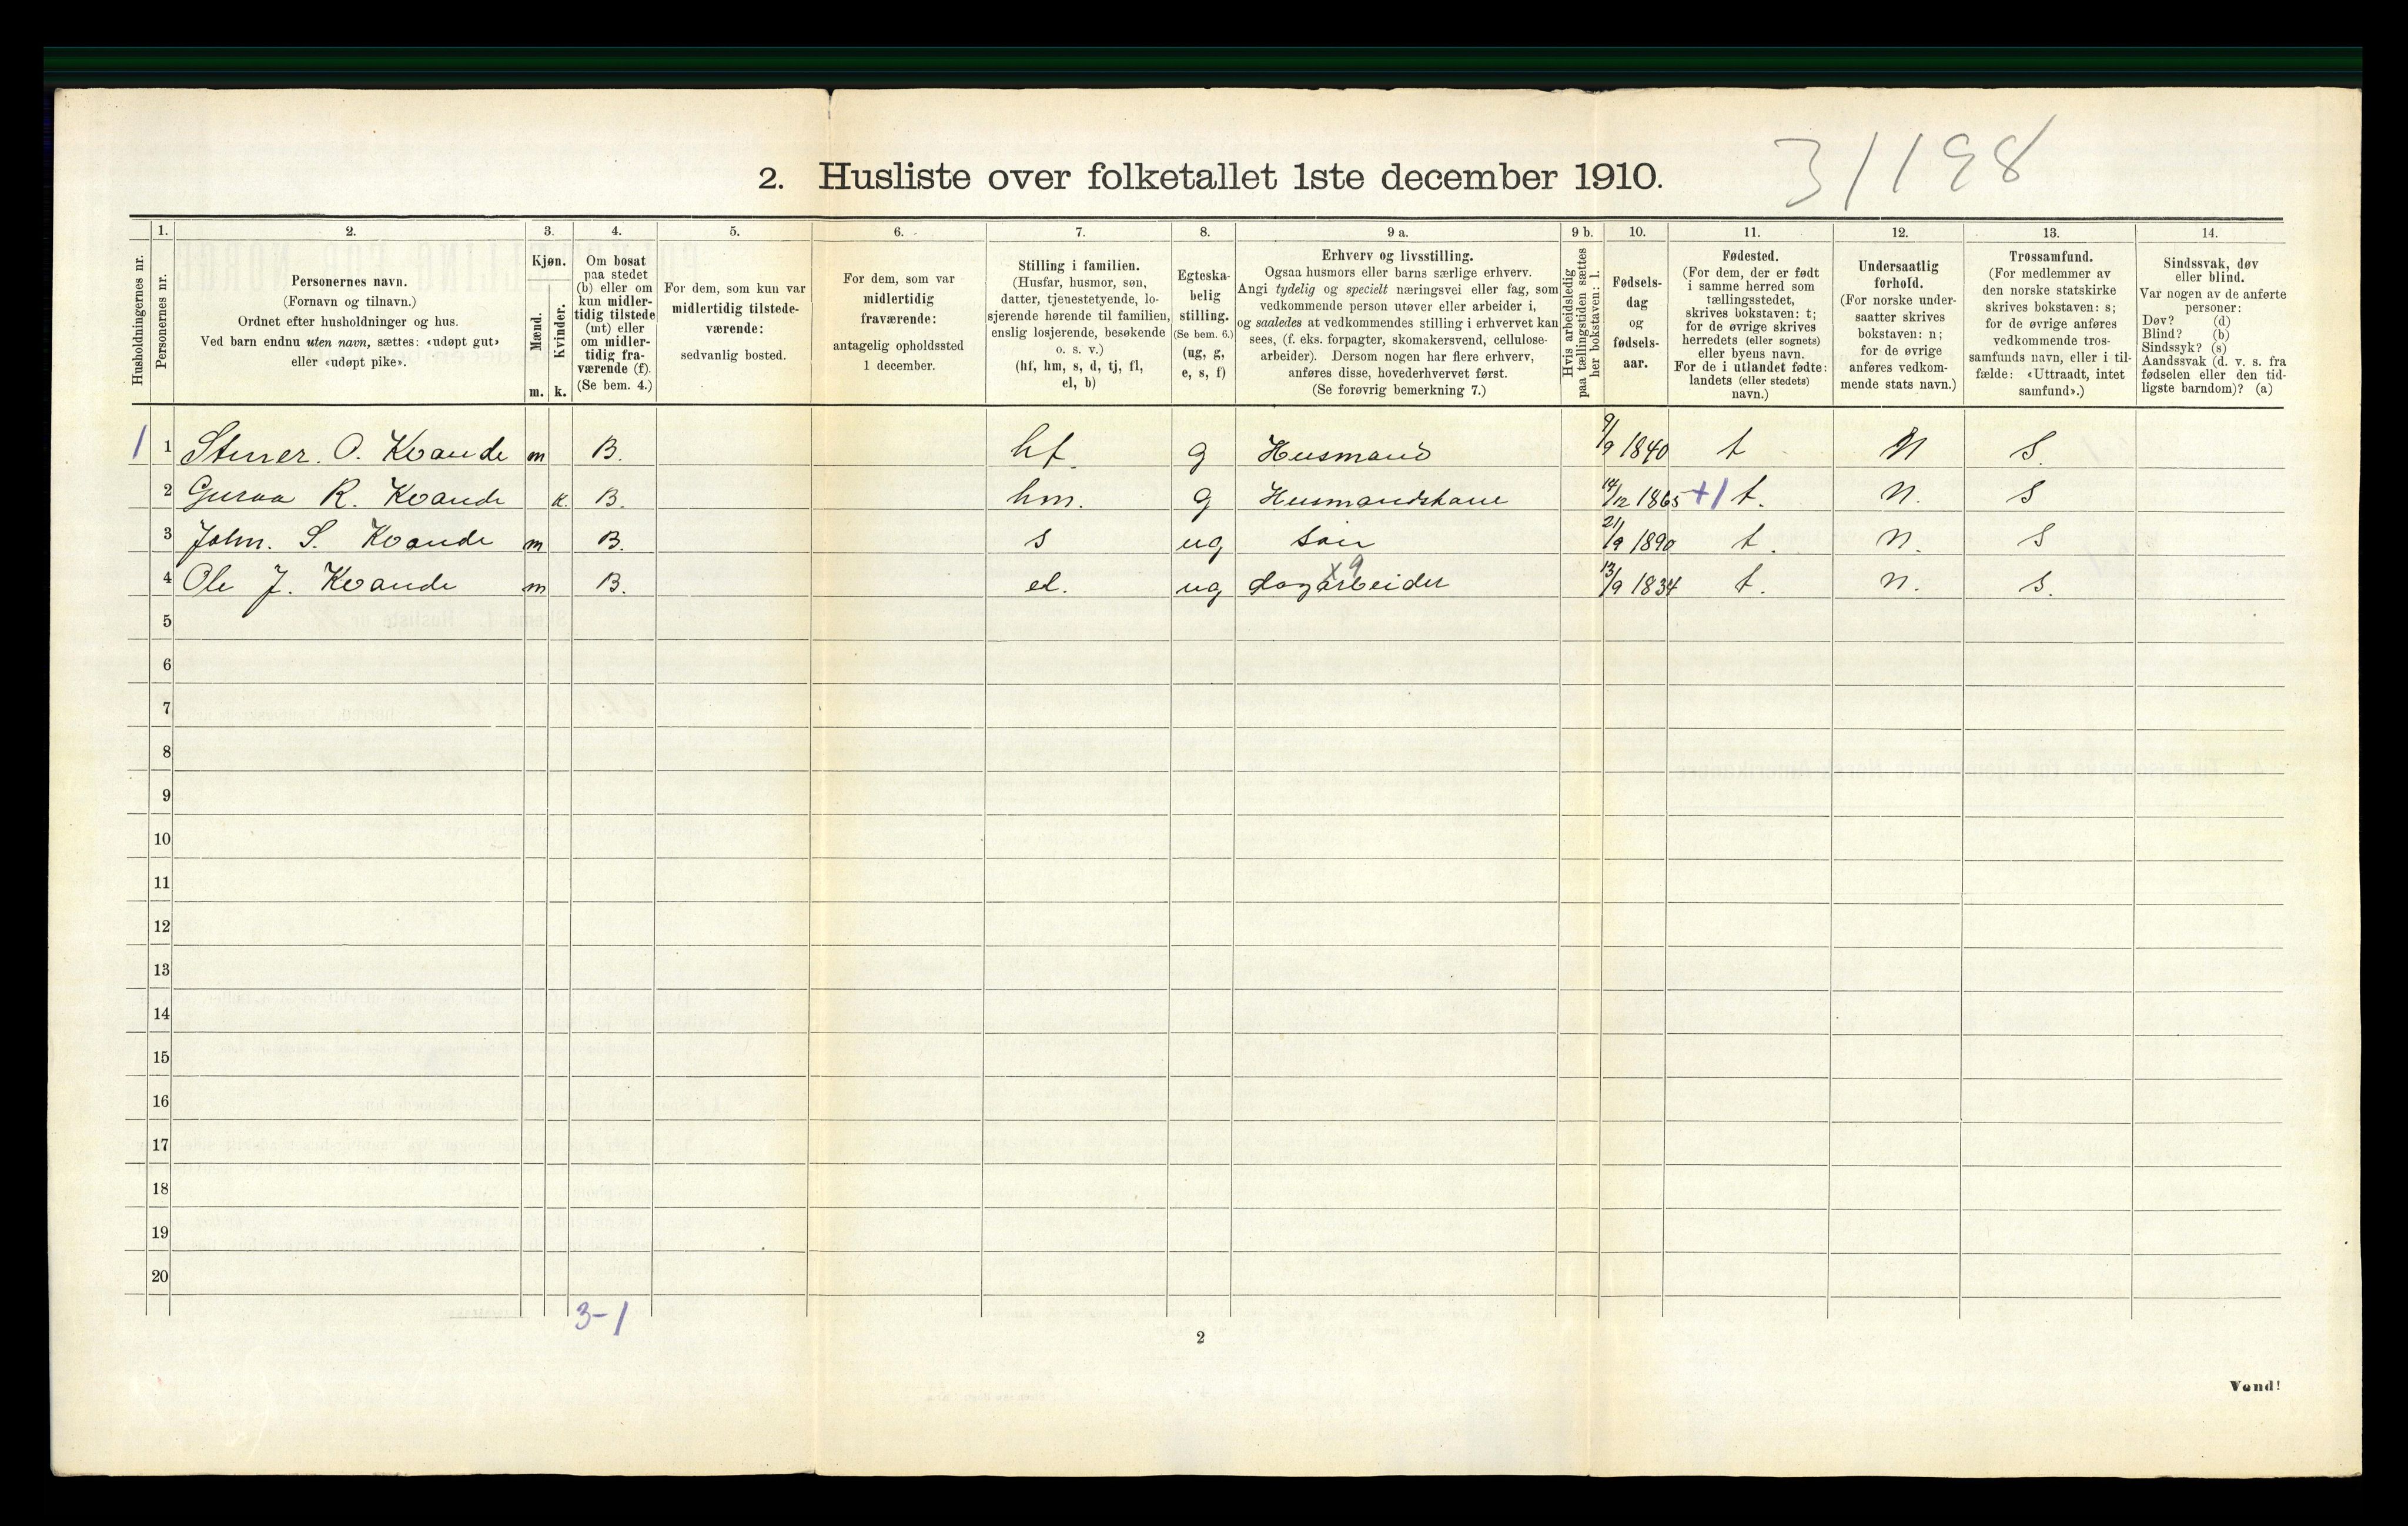 31198
2. Husliste over folketallet 1ste december 1910.
Husholdningernes nr.
1.
Personernes nr.
2.
Personernes navn.
(Fornavn og tilnavn.)
Ordnet efter husholdninger og hus.
Ved barn endnu uten navn, sættes: «udøpt gut»
eller «udøpt pike».
3.
Kjøn.
Mænd.
Kvinder.
m. k.
4.
Om bosat
paa stedet
(b) eller om
kun midler-
tidig tilstede
(mt) eller
om midler-
tidig fra-
værende (f).
(Se bem. 4.)
5.
For dem, som kun var
midlertidig tilstede-
værende:
sedvanlig bosted.
6.
For dem, som var
midlertidig
fraværende:
antagelig opholdssted
1 december.
7.
Stilling i familien.
(Husfar, husmor, søn,
datter, tjenestetyende, lo-
sjerende hørende til familien,
enslig losjerende, besøkende
o. s. v.)
(hf, hm, s, d, tj, fl,
el, b)
8.
Egteska-
belig
stilling.
(Se bem. 6.)
(ug, g,
e, s, f)
9 a.
Erhverv og livsstilling.
Ogsaa husmors eller barns særlige erhverv.
Angi tydelig og specielt næringsvei eller fag, som
vedkommende person utøver eller arbeider i,
og saaledes at vedkommendes stilling i erhvervet kan
sees, (f. eks. forpagter, skomakersvend, cellulose-
arbeider). Dersom nogen har flere erhverv,
anføres disse, hovederhvervet først.
(Se forøvrig bemerkning 7.)
9 b.
Hvis arbeidsledig
paa tællingstiden sættes
her bokstaven: l.
10.
Fødsels-
dag
og
fødsels-
aar.
11.
Fødested.
(For dem, der er født
i samme herred som
tællingsstedet,
skrives bokstaven: t;
for de øvrige skrives
herredets (eller sognets)
eller byens navn.
For de i utlandet fødte:
landets (eller stedets)
navn.)
12.
Undersaatlig
forhold.
(For norske under-
saatter skrives
bokstaven: n;
for de øvrige
anføres vedkom-
mende stats navn.)
13.
Trossamfund.
(For medlemmer av
den norske statskirke
skrives bokstaven: s;
for de øvrige anføres
vedkommende tros-
samfunds navn, eller i til-
fælde: «Uttraadt, intet
samfund».)
14.
Sindssvak, døv
eller blind.
Var nogen av de anførte
personer:
Døv? (d)
Blind? (b)
Sindssyk? (s)
Aandssvak (d. v. s. fra
fødselen eller den tid-
ligste barndom)? (a)
1 1 O. Kvande m B. hf. g Husmand 9/9 1840 t N S.
2 R. Kvande k. B. hm. g Husmandskone 14/12 1865 +1 t. n. S
3 John. S. Kvande m B. s ug søn 21/9 1890 t. n. S
x9
4 Ole J. Kvande m B. el. ug dagarbeider 13/9 1834 t. n. S.
5
6
7
8
9
10
11
12
13
14
15
16
17
18
19
20
3-1
2
Vend!